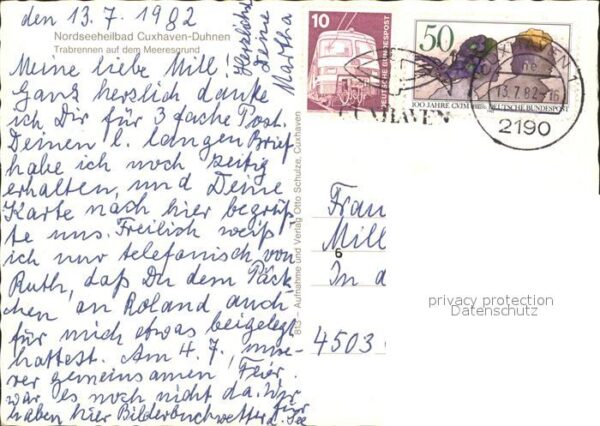 den 13.7.1982
Nordseeheilbad Cuxhaven-Duhnen
Trabrennen auf dem Meeresgrund
Meine liebe Milli!
Ganz herzlich danke
ich Dir für 3 fache Post.
Deinen l. langen Brief
habe ich noch zeitig
erhalten, und Deine
Karte nach hier begrüß-
te uns. Freilich weiß
ich nur telefonisch von
Ruth, daß Du dem Päck-
chen an Roland auch
für mich etwas beigelegt
hattest. Am 4.7., unse-
rer gemeinsamen Feier
war es noch nicht da. Wir
haben hier Bilderbuchwetter
d. See
für
Herzlichst
Deine
Martha
813 – Aufnahme und Verlag Otto Schulze, Cuxhaven
10
DEUTSCHE BUNDESPOST
50
100 JAHRE CVJM
DEUTSCHE BUNDESPOST
CUXHAVEN
13.7.82-16
2190
Frau
Mill
6
In d
4503
privacy protection
Datenschutz